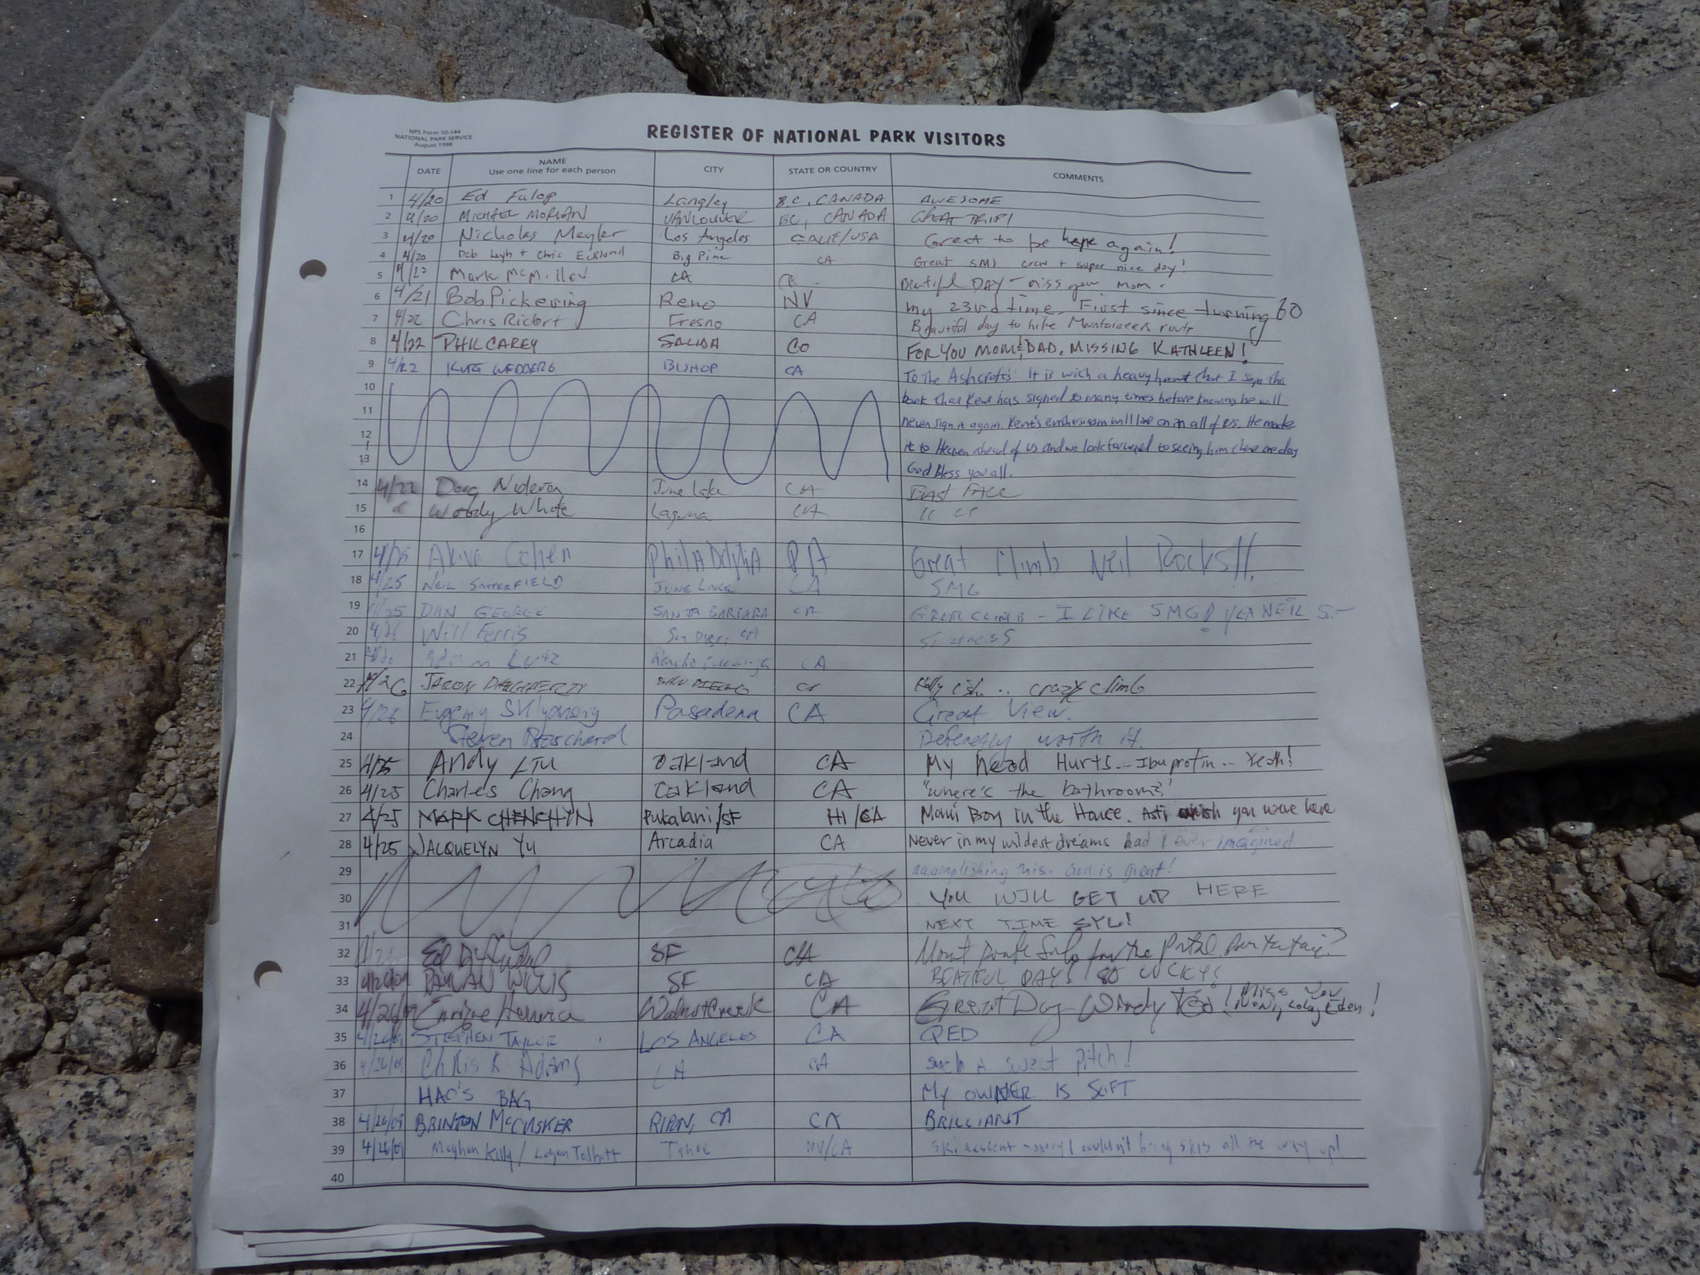 NPS Form 10-144
NATIONAL PARK SERVICE
August 1998
REGISTER OF NATIONAL PARK VISITORS
DATE NAME CITY STATE OR COUNTRY COMMENTS
Use one line for each person
1 4/20 Ed Fulop Langley B.C., CANADA AWESOME
2 4/20 MICHAEL MORGAN VANCOUVER BC, CANADA GREAT TRIP!
3 4/20 Nicholas Meyler Los Angeles CALIF/USA Great to be here again!
4 4/20 Deb + Chris Big Pine CA Great SMI crew + super nice day!
5 Mark McMillan CA Beautiful DAY - miss you Mom.
6 4/21 Bob Pickering Reno NV My 23rd time. First since turning 60
7 4/22 Chris Rickert Fresno CA Beautiful day to hike Mountaineers route
8 4/22 PHIL CAREY SALIDA CO FOR YOU MOM & DAD, MISSING KATHLEEN!
9 4/22 KURT WEDBERG BISHOP CA To the Ashcrafts: It is with a heavy heart that I sign this
10 book that Kent has signed so many times before knowing he will
11 never sign it again. Kent's enthusiasm will live on in all of us. He made
12 it to Heaven ahead of us and we look forward to seeing him there one day
13 God bless you all.
14 4/22 Doug June Lake CA EAST FACE
15 " Woody White Laguna CA " "
16
17 4/25 Akiva Cohen PhilADelphiA PA Great Climb Neil Rocks!!
18 4/25 NEIL SATTERFIELD JUNE LAKE CA SMG
19 4/25 DAN GEORGE SANTA BARBARA CA GREAT CLIMB - I LIKE SMG! YEA NEIL S.
20 Will Ferris San Diego, CA
21 Adam Lutz CA
22 4/26 JASON DAUGHERTY SAN DIEGO CA crazy climb
23 4/26 Evgeny Pasadena CA Great View.
24 Steven Definetly worth it.
25 4/25 Andy LIU Oakland CA My head Hurts... Ibuprofin... Yeah!
26 4/25 Charles Chang Oakland CA "Where's the bathroom?"
27 4/25 MARK CHENCHIN Pukalani/SF HI/CA Maui Boy in the House. wish you were here
28 4/25 JACQUELYN YU Arcadia CA Never in my wildest dreams had I ever imagined
29 accomplishing this. God is great!
30 YOU WILL GET UP HERE
31 NEXT TIME SYL!
32 Ed SF CA for the
33 4/26/09 SF CA BEATIFUL DAY! SO LUCKY!
34 4/26/09 Enrique Herrera Walnut Creek CA Great Day Windy Too! Miss You
35 4/26/09 STEPHEN LOS ANGELES CA QED
36 4/26/09 Chris R. Adams LA CA such a sweet pitch!
37 HAO'S BAG MY OWNER IS SOFT
38 4/26/09 BRINTON McCUSKER RIPON, CA CA BRILLIANT
39 4/26/09 Meghan Kelly / Logan Talbott Tahoe NV/CA Ski descent couldn't bring skis all the way up!
40